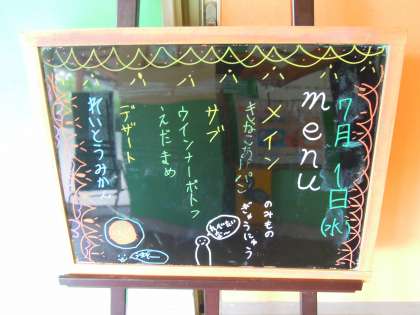 7月1日(水)
menu
メイン
きなこあげパン
のみもの
ぎゅうにゅう
サブ
ウインナーポトフ
えだまめ
デザート
れいとうみかん